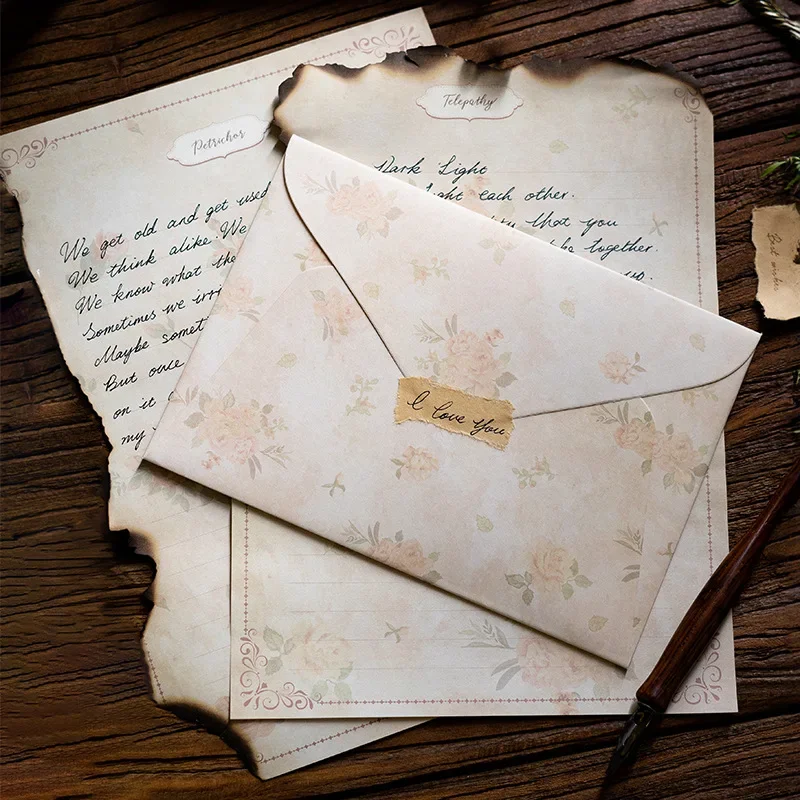 Petrichor
We get old and get used
We think alike. We
We know what the
Sometimes we irri
Maybe somet
But once
on it
my
Telepathy
Dark Light
light each other.
that you
be together.
us.
I love You
Best wishes